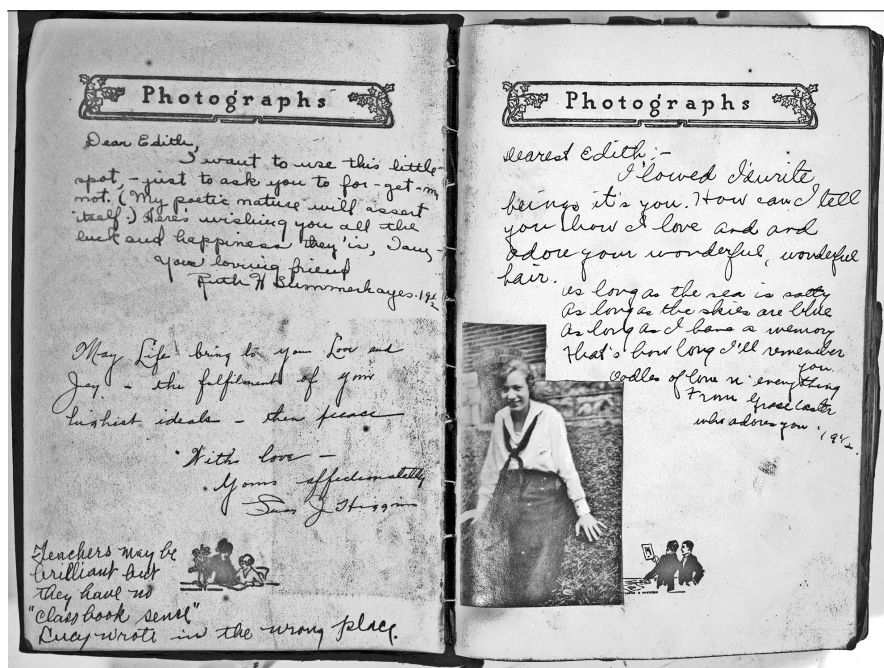 Photographs
Dear Edith,
I want to use this little
spot, - just to ask you to for-get-me
not. (My poetic nature will assert
itself.) Here's wishing you all the
luck and happiness they is, I am,
Your loving friend
Ruth W Summerhayes. 19½
May Life bring to you Love and
Joy - the fulfilment of your
highest ideals - then please
With love -
Yours affectionately
J Higgins
Teachers may be
brilliant but
they have no
"class book sense"
Lucy wrote in the wrong place.
Photographs
Dearest Edith:-
I'lowed I'd write
beings it's you. How can I tell
you how I love and and
adore your wonderful, wonderful
hair.
As long as the sea is salty
As long as the skies are blue
As long as I have a memory
That's how long I'll remember
you.
Oodles of love n' everything
From Grace
who adores you. '19½.